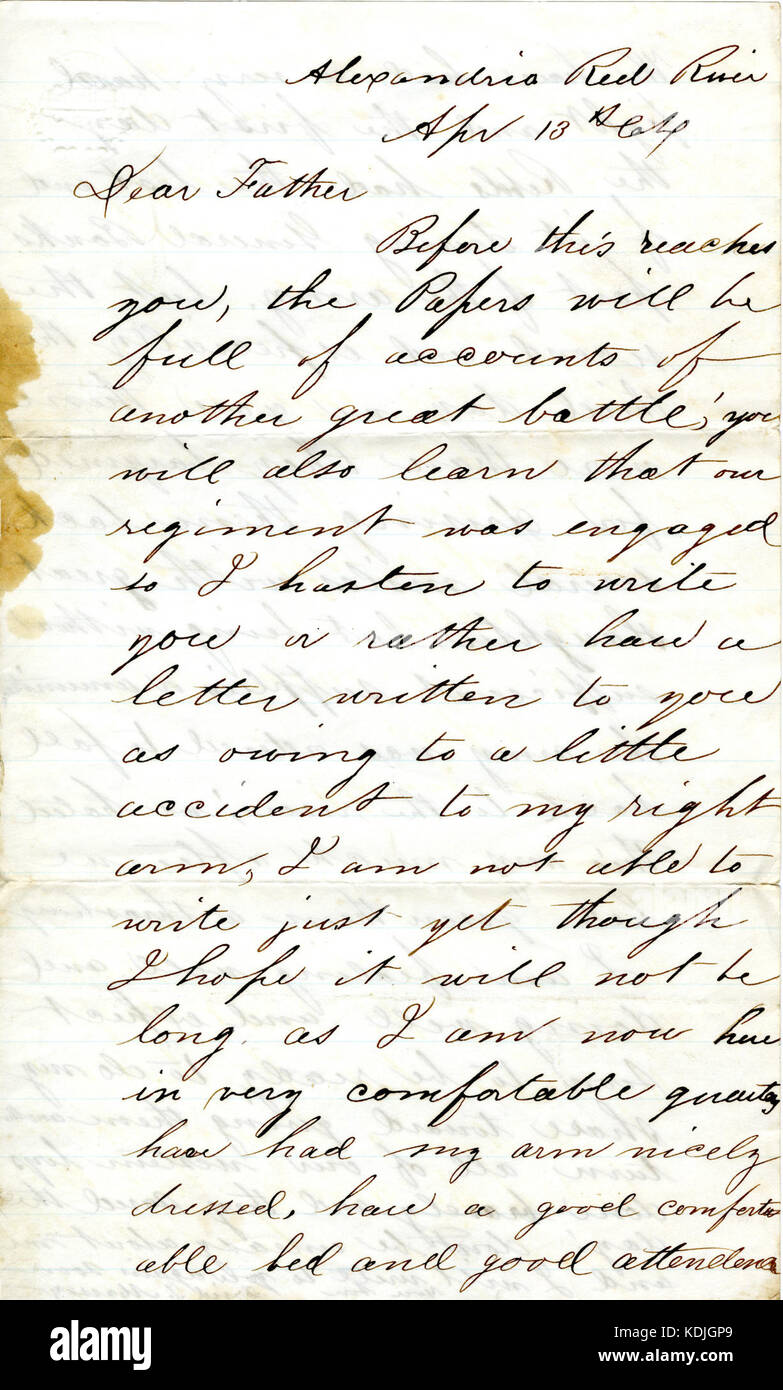 Alexandria Red River
Apr 13th 64
Dear Father
Before this reaches
you, the Papers will be
full of accounts of
another great battle, you
will also learn that our
regiment was engaged
so I hasten to write
you or rather have a
letter written to you
as owing to a little
accident to my right
arm, I am not able to
write just yet though
I hope it will not be
long. as I am now here
in very comfortable
have had my arm nicely
dressed, have a good comfort
able bed and good attendence
alamy
a
alamy
Image ID: KDJGP9
www.alamy.com